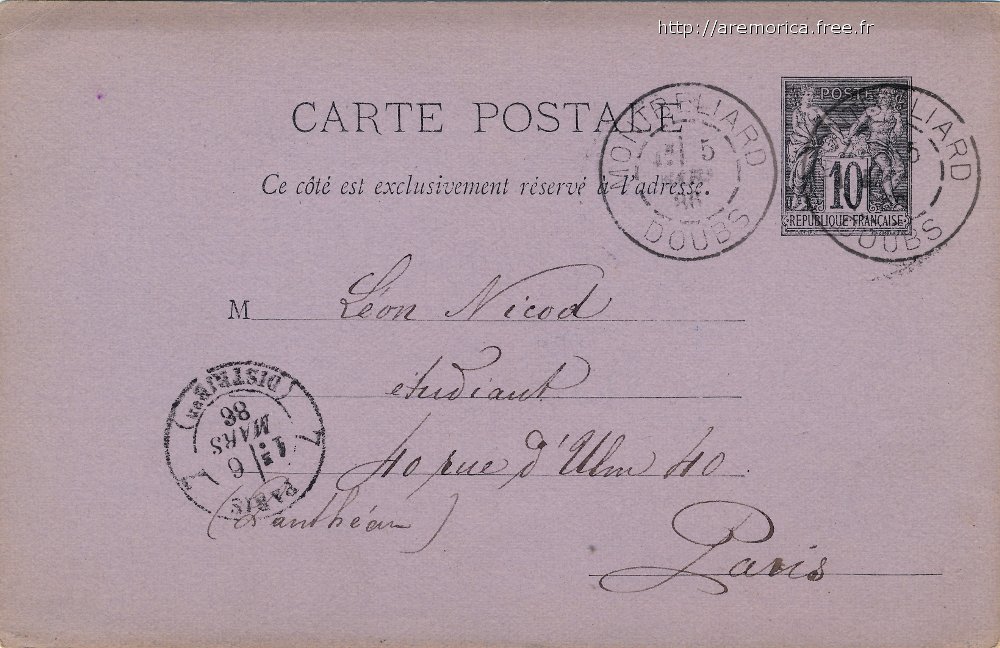 http://aremorica.free.fr
CARTE POSTALE
Ce côté est exclusivement réservé à l'adresse.
MONTBELIARD
5
MARS
86
DOUBS
POSTE
10
REPUBLIQUE FRANÇAISE
LIARD
5
DOUBS
M Léon Nicod
étudiant
40 rue d'Ulm 40
(Panthéon)
Paris
PARIS
1E
6
MARS
86
(DISTRIBon)